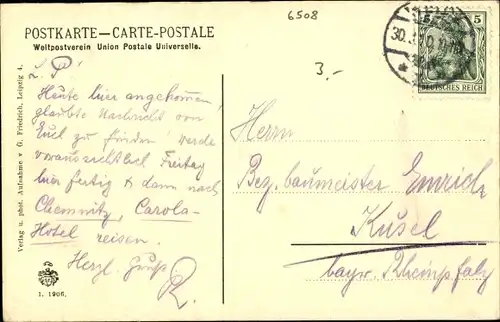 6508
POSTKARTE—CARTE-POSTALE
Weltpostverein Union Postale Universelle.
3.-
30.
5 5
DEUTSCHES REICH
L. P.!
Heute hier angekommen,
glaubte Nachricht von
Euch zu finden! Werde
voraussichtlich Freitag
hier fertig & dann nach
Chemnitz, Carola-
Hotel reisen.
Herzl. Gruß
R.
Herrn
Bez. baumeister Emrich
Kusel
bayr. Rheinpfalz
Verlag u. phot. Aufnahme v. O. Friedrich, Leipzig 4.
1. 1906.